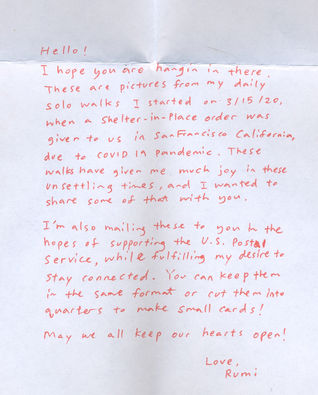 Hello!
I hope you are hangin in there.
These are pictures from my daily
solo walks I started on 3/15/20,
when a Shelter-in-Place order was
given to us in San Francisco California,
due to COVID 19 pandemic. These
walks have given me much joy in these
unsettling times, and I wanted to
share some of that with you.
I'm also mailing these to you in the
hopes of supporting the U.S. Postal
Service, while fulfilling my desire to
stay connected. You can keep them
in the same format or cut them into
quarters to make small cards!
May we all keep our hearts open!
Love,
Rumi